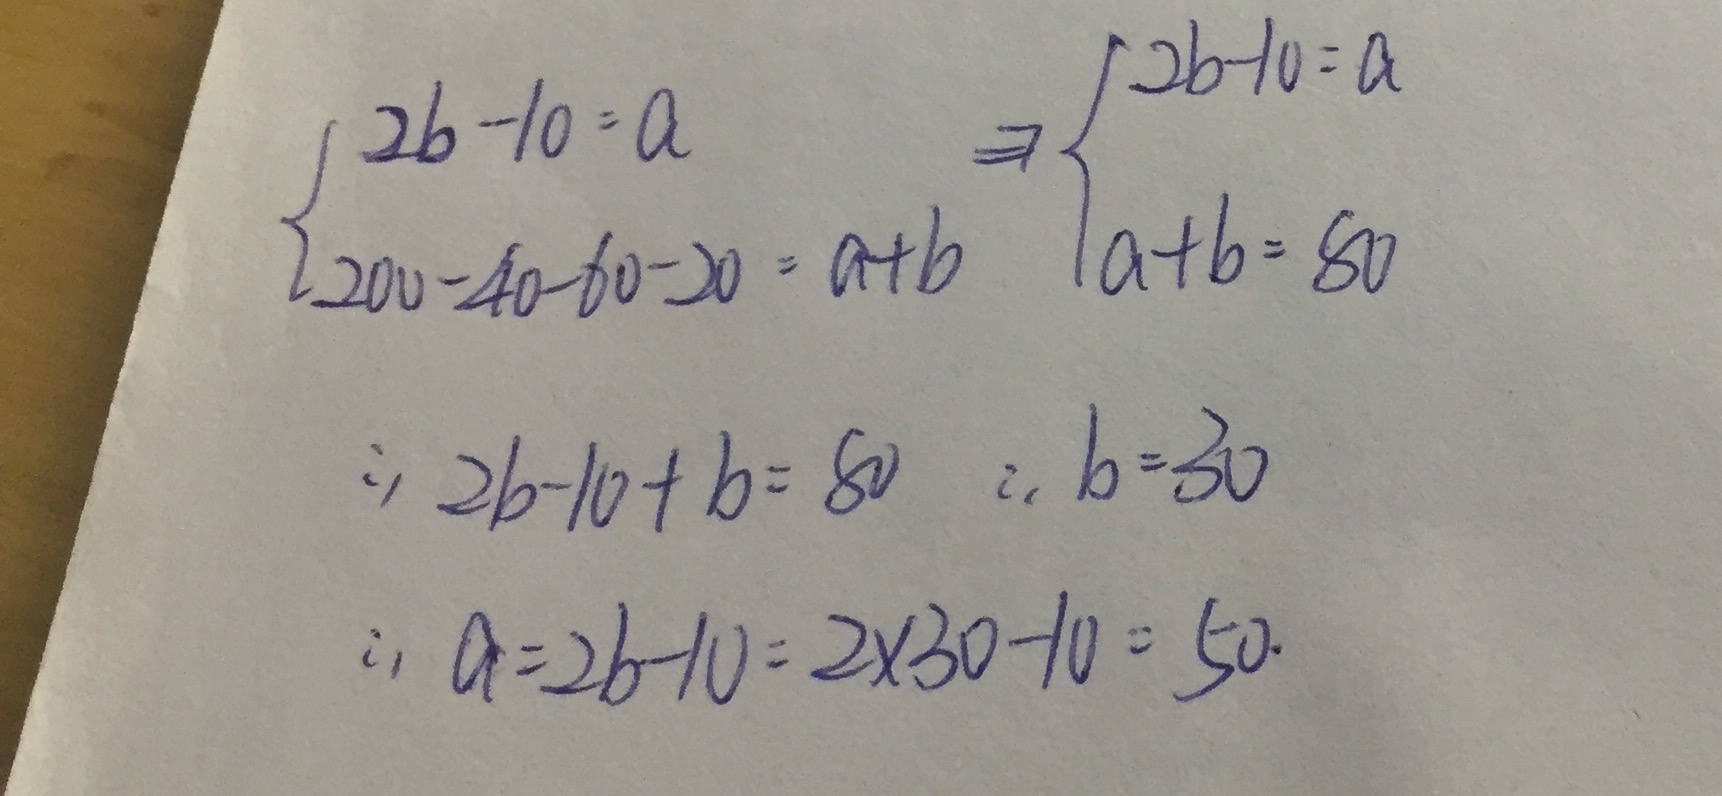 2b-10=a
200-40-60-20=a+b
⇒ 2b-10=a
a+b=80
∴ 2b-10+b=80 ∴ b=30
∴ a=2b-10=2×30-10=50.